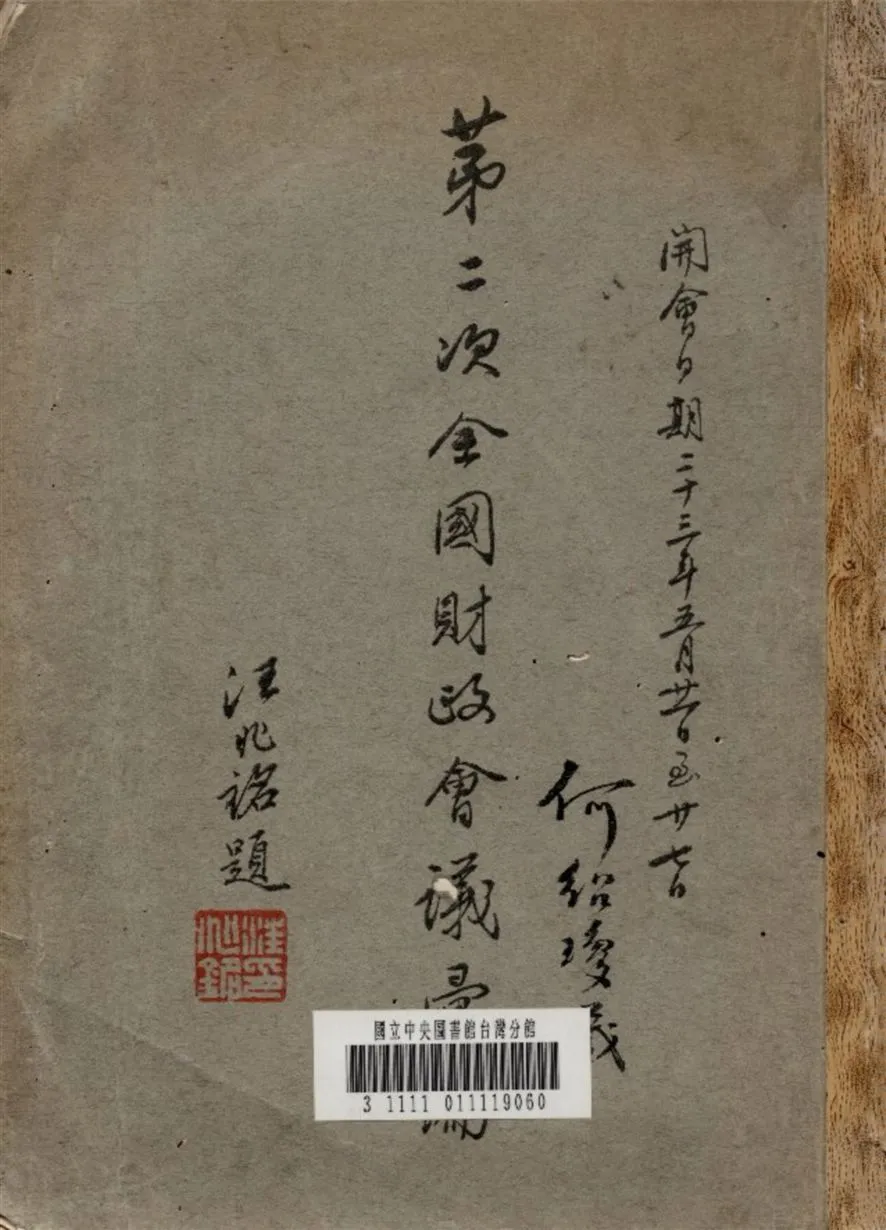 開會日期二十三年五月廿一日至廿七日
何紹瓊
第二次全國財政會議彙編
汪兆銘題
汪印兆銘
國立中央圖書館台灣分館
3 1111 011119060